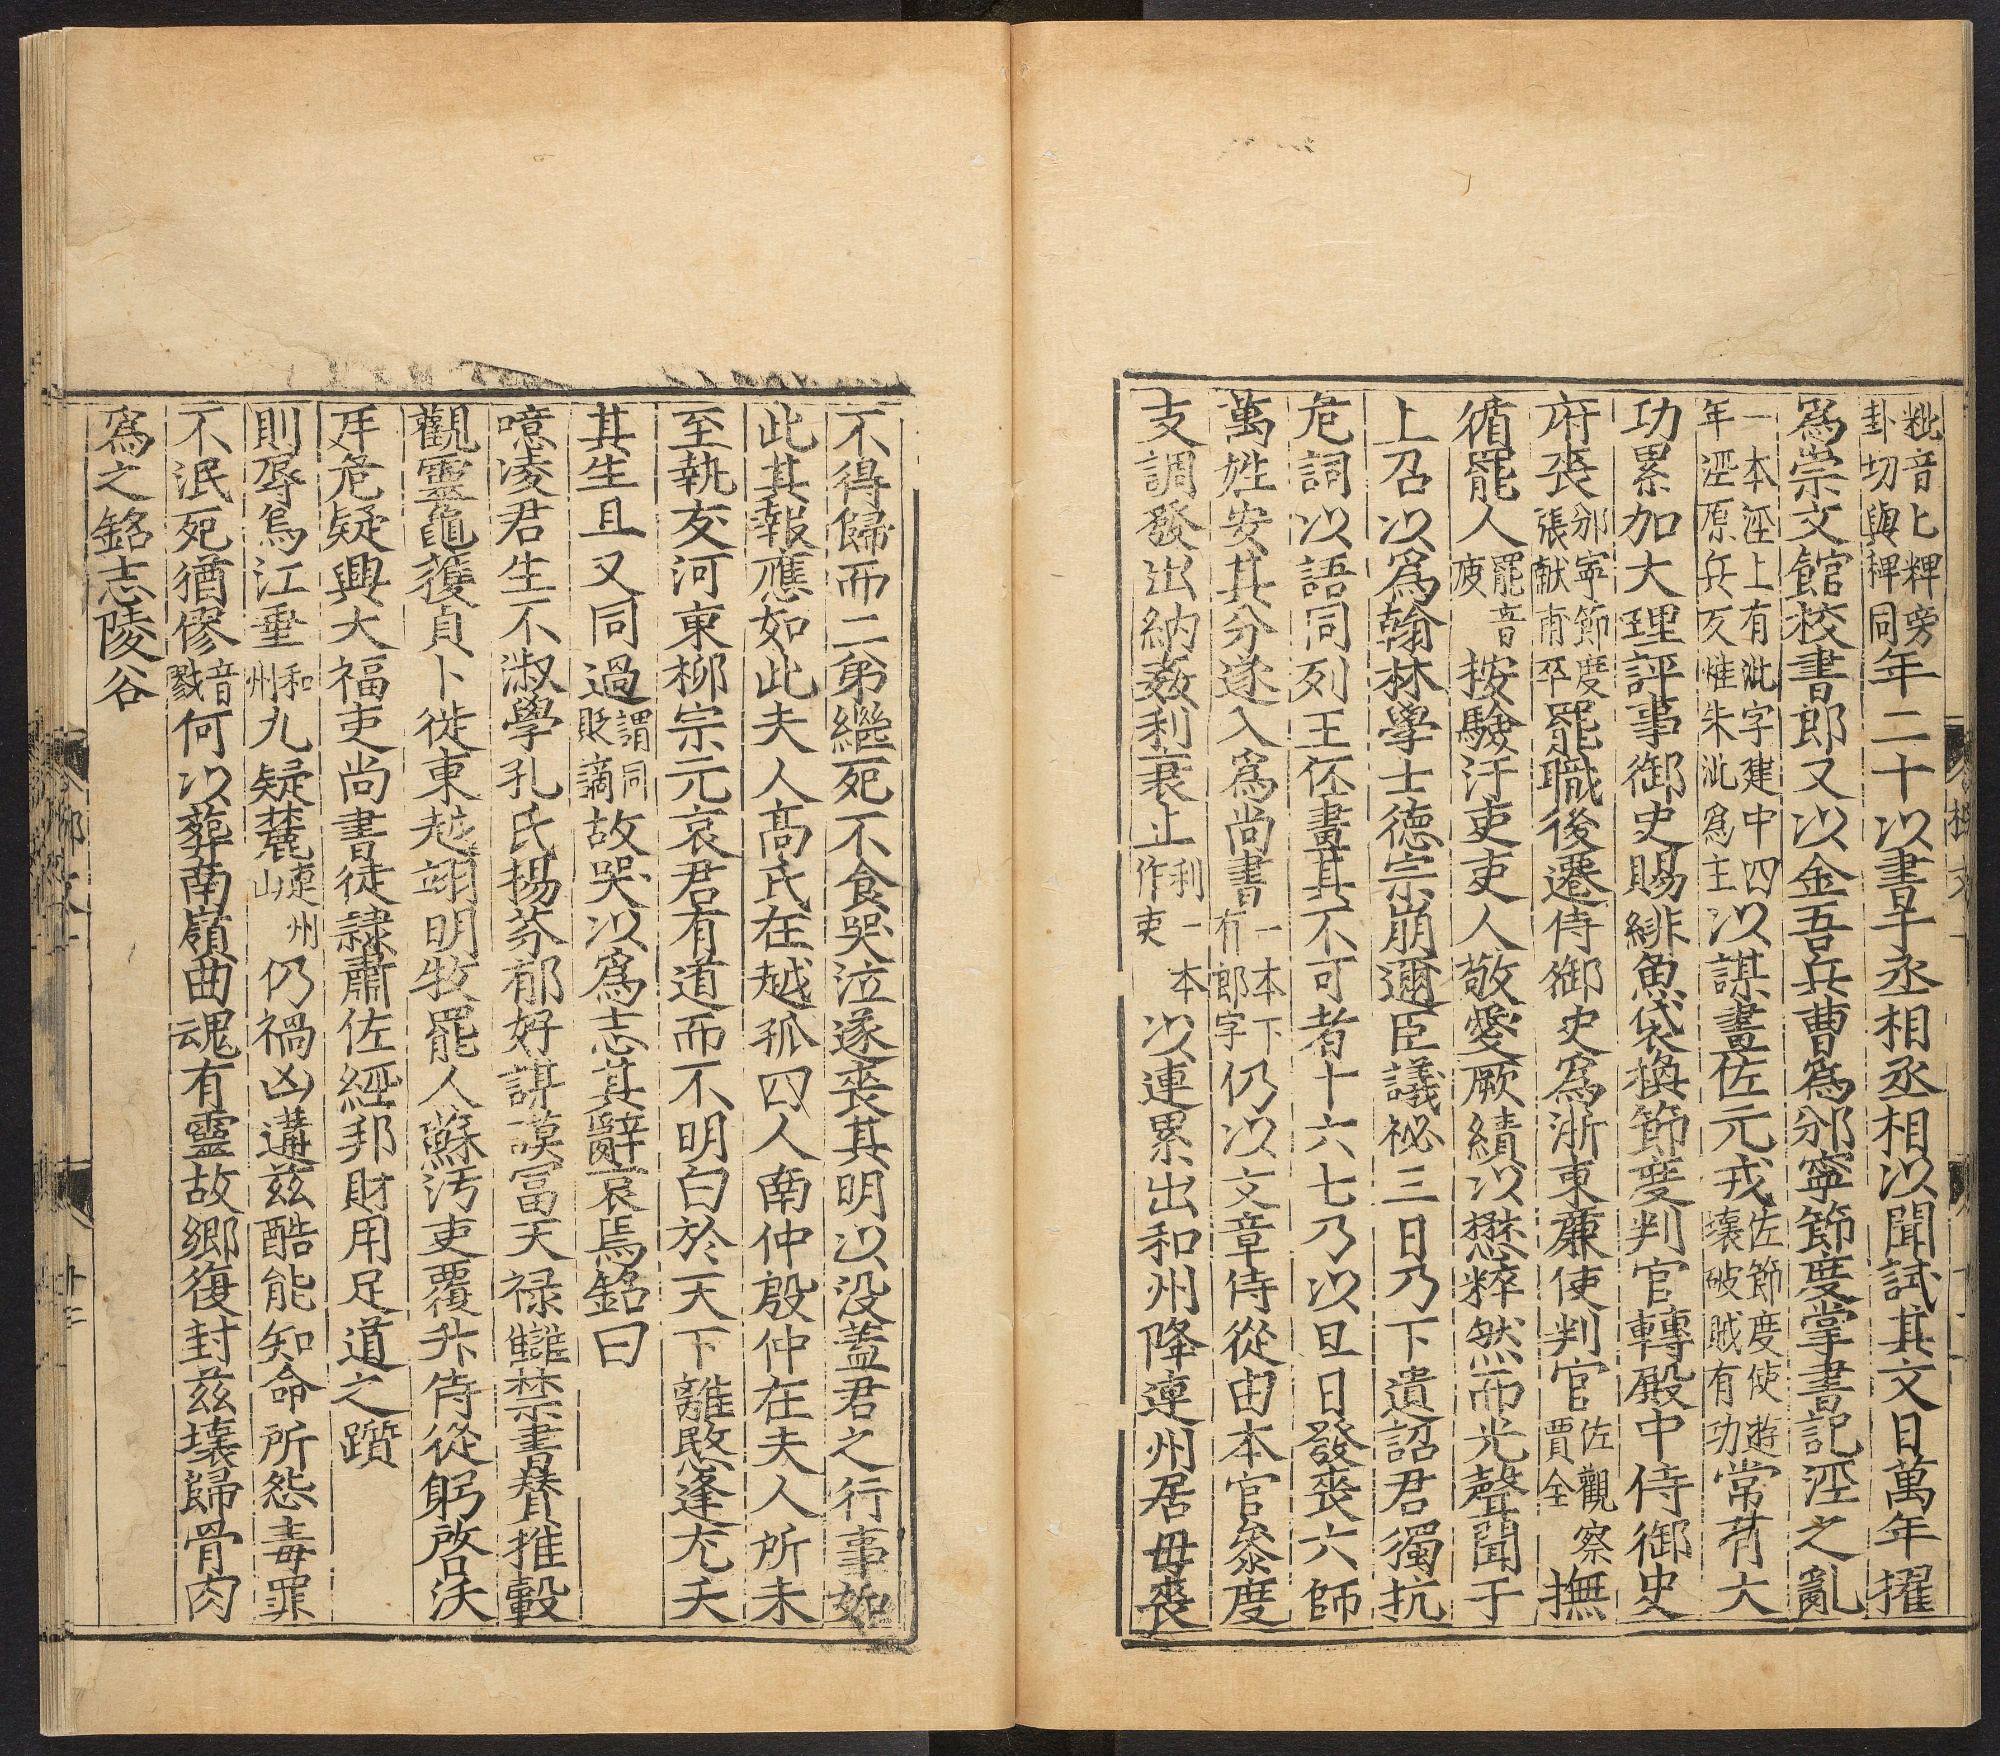 粃音匕粺旁卦切與稗同年二十以書干丞相丞相以聞試其文日萬年擢
爲崇文館校書郎又以金吾兵曹爲邠寧節度掌書記涇之亂
一本涇上有泚字建中四年涇原兵亥惟朱泚爲主以謀畫佐元戎佐節度使遊壞破賊有功常有大
功累加大理評事御史賜緋魚袋換節度判官轉殿中侍御史
府喪邠寧節度張献甫卒罷職後遷侍御史爲浙東廉使判官佐觀察賈全撫
循罷人罷音疲按驗汙吏吏人敬愛厥績以懋粹然而光聲聞于
上召以爲翰林學士德宗崩邇臣議祕三日乃下遺詔君獨抗
危詞以語同列王伾畫其不可者十六七乃以旦日發喪六師
萬姓安其分遂入爲尚書一本下有郎字仍以文章侍從由本官叅度
支調發出納姦利衰止利一本作吏以連累出和州降連州居母喪
不得歸而二弟繼死不食哭泣遂喪其明以没蓋君之行事如
此其報應如此夫人高氏在越孤四人南仲殷仲在夫人所未
至執友河東柳宗元哀君有道而不明白於天下離愍逢尤夭
其生且又同過謂同貶謫故哭以爲志其辭哀焉銘曰
噫凌君生不淑學孔氏揚芬郁好謀謨冨天禄讎禁書賛推轂
觀靈龜獲貞卜徙東越翊明牧罷人蘇汚吏覆升侍從躬啓沃
㧪危疑興大福吏尚書徒隷肅佐經邦財用足道之躓
則辱烏江垂和州九疑麓連州山仍禍凶遘兹酷能知命所怨毒罪
不泯死猶僇音戮何以葬南嶺曲魂有靈故郷復封兹壤歸骨肉
爲之銘志陵谷